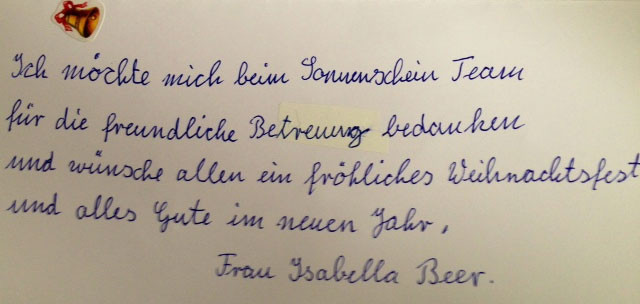 Ich möchte mich beim Sonnenschein Team
für die freundliche Betreuung bedanken
und wünsche allen ein fröhliches Weihnachtsfest
und alles Gute im neuen Jahr,
Frau Isabella Beer.